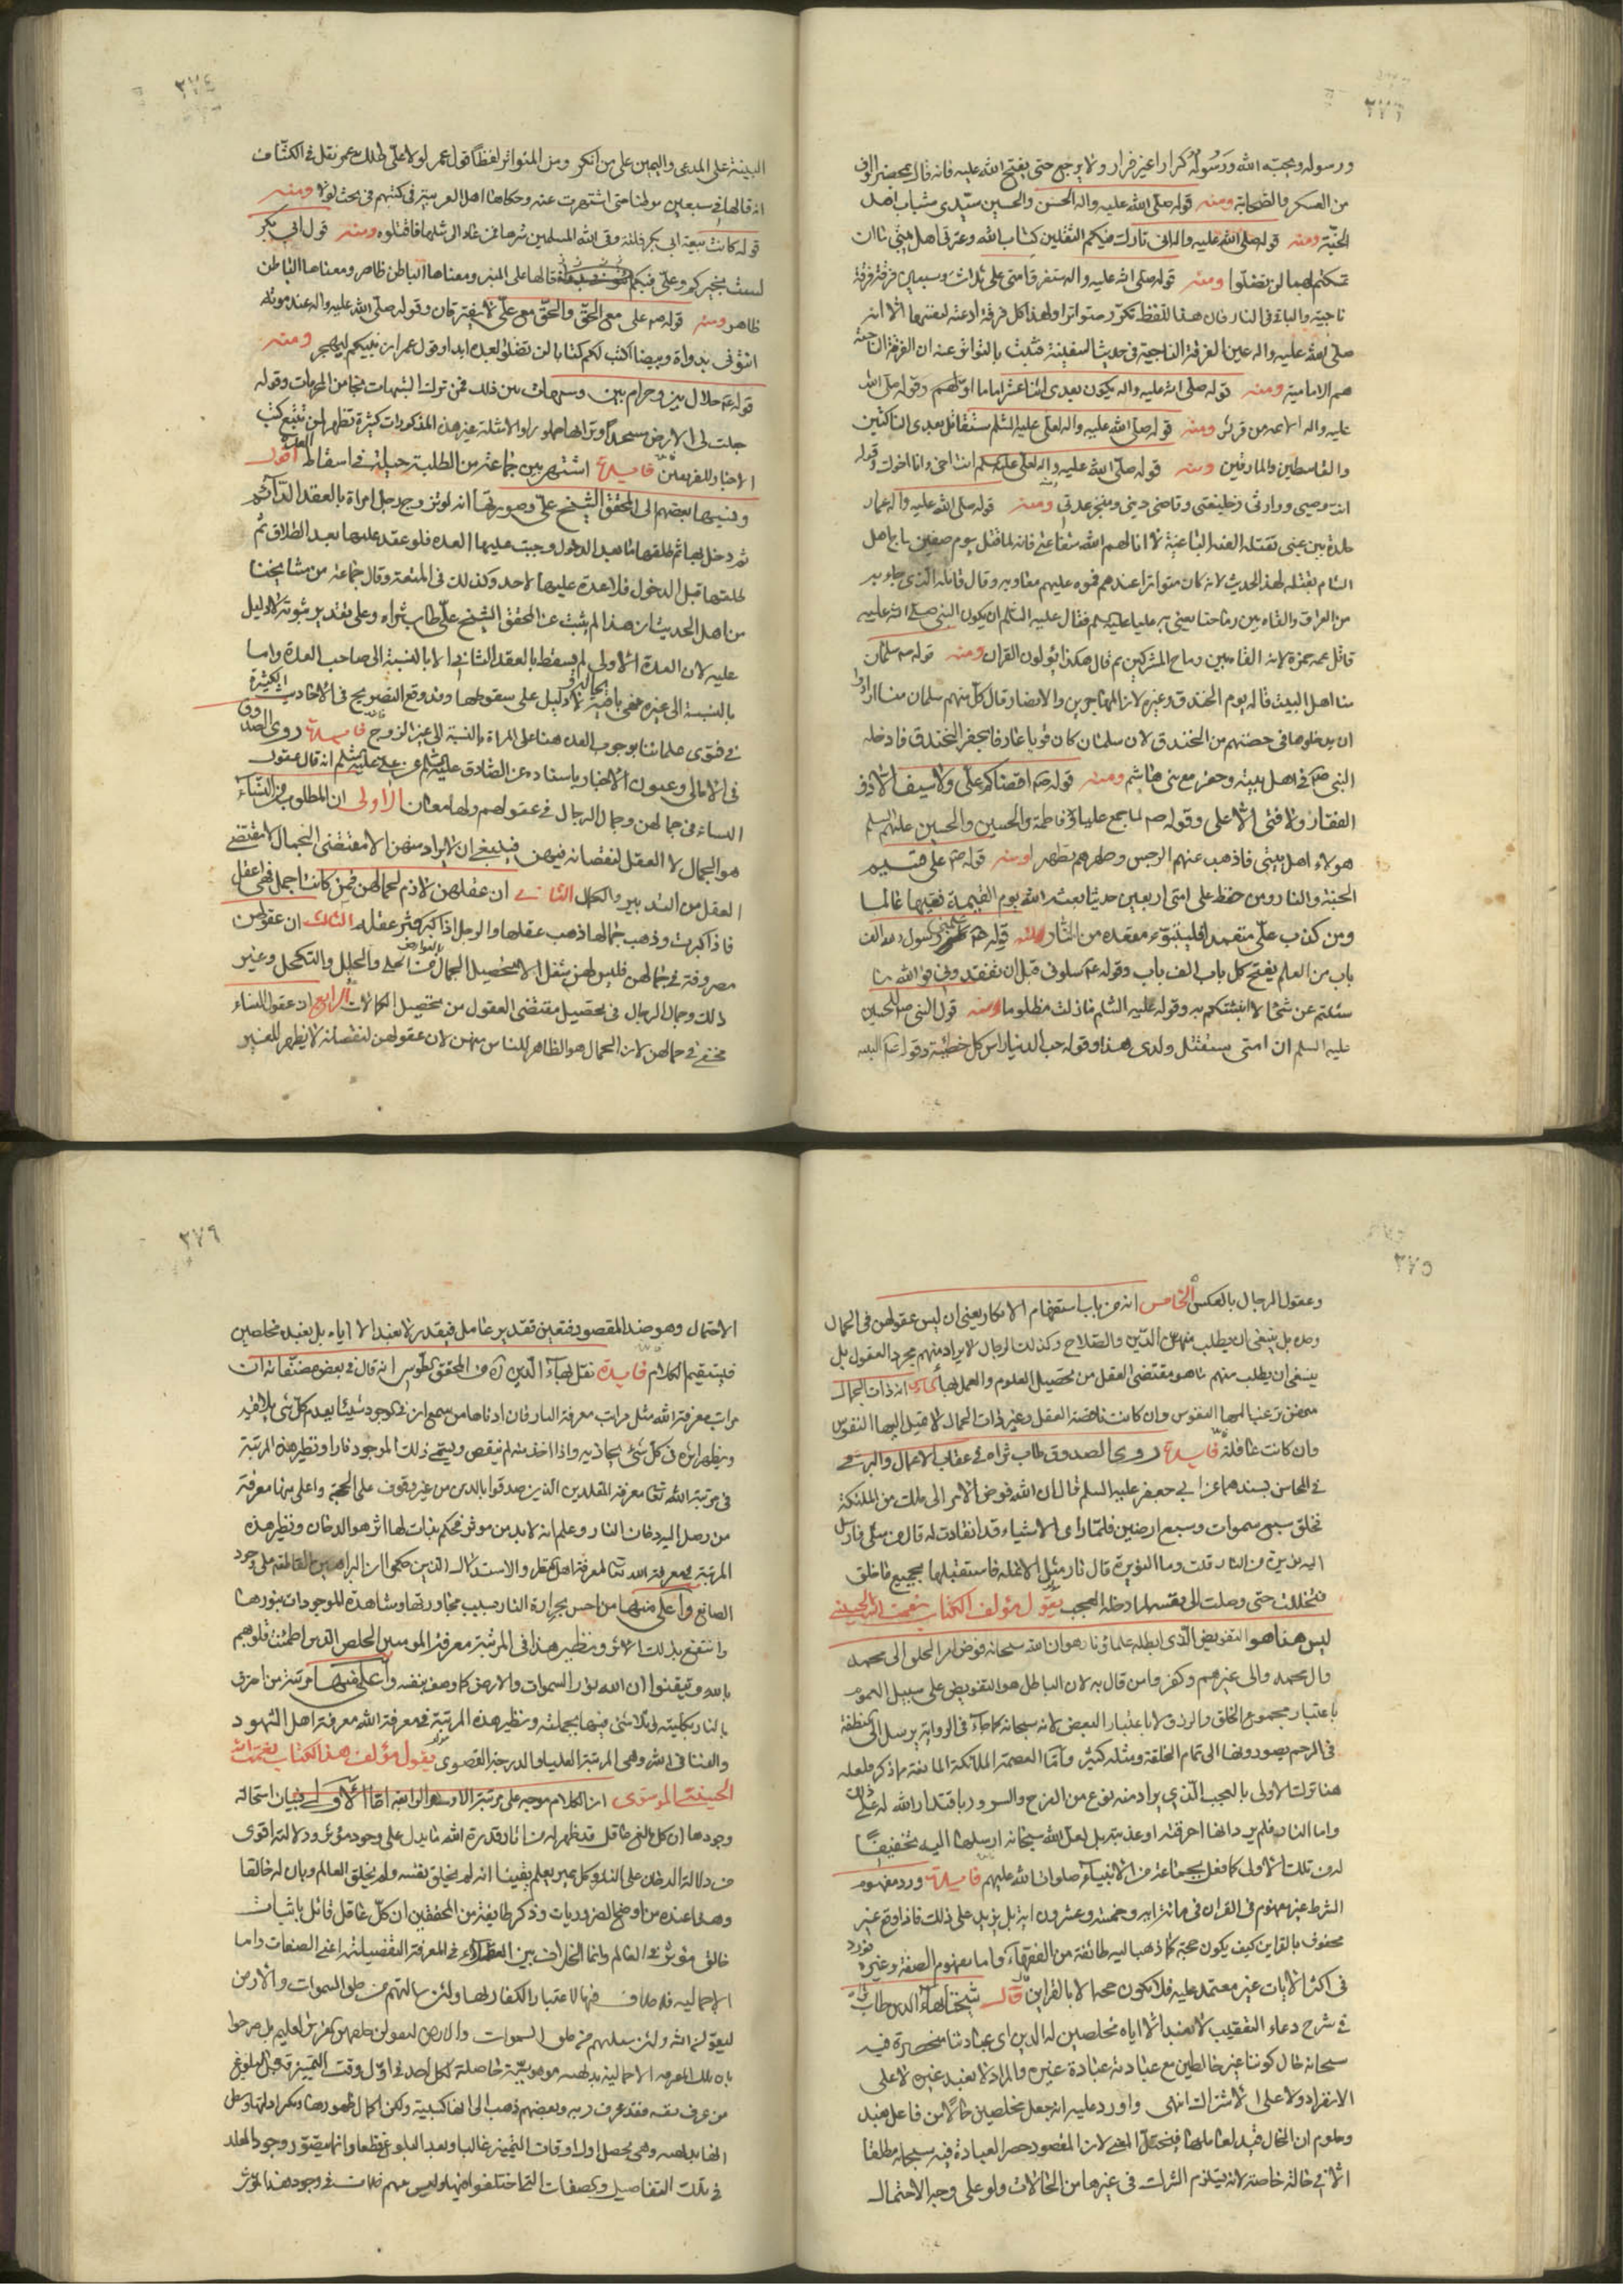 ٣٧٣
ورسوله ويحبه الله ورسوله كرارا غير فرار ولا يرجع حتى يفتح الله عليه فانه قال بمحضر الوف
من العسكر والصحابة ومنه قوله صلى الله عليه واله الحسن والحسين سيدي شباب اهل
الجنة ومنه قوله صلى الله عليه واله اني تارك فيكم الثقلين كتاب الله وعترتي اهل بيتي ما ان
تمسكتم بهما لن تضلوا ومنه قوله صلى الله عليه واله ستفرق امتي على ثلاث وسبعين فرقة فرقة
ناجية والباقي في النار فان هذا اللفظ تكرر متواترا ولهذا كل فرقة ادعته لنفسها الا انه
صلى الله عليه واله عين الفرقة الناجية في حديث السفينة فثبت بالتواتر عنه ان الفرقة الناجية
هم الامامية ومنه قوله صلى الله عليه واله يكون بعدي اثنا عشر اماما اولهم وقوله صلى الله
عليه واله الائمة من قريش ومنه قوله صلى الله عليه واله لعلي عليه السلم ستقاتل بعدي الناكثين
والقاسطين والمارقين ومنه قوله صلى الله عليه واله لعلي عليه سلم انت اخي وانا اخوك وقوله
انت وصيي ووارثي وخليفتي وقاضي ديني ومنجز عدتي ومنه قوله صلى الله عليه واله عمار
جلدة بين عيني تقتله الفئة الباغية لا انالهم الله شفاعتي فانه لما قتل يوم صفين هاج اهل
الشام بقتله لهذا الحديث لانه كان متواترا عندهم فموه عليهم معاوية وقال قاتله الذي جاء به
من العراق والقاه بين رماحنا يعني به عليا عليه سلم فقال عليه السلم ان يكون النبي صلى الله عليه
قاتل عمه حمزة لانه القاه بين رماح المشركين ثم قال هكذا يؤلون القران ومنه قوله صم سلمان
منا اهل البيت قاله يوم الخندق وغيره لان المهاجرين والانصار قال كل منهم سلمان منا ارادوا
ان يدخلوها في حصتهم من الخندق لان سلمان كان قويا عارفا بحفر الخندق فادخله
النبي صم في اهل بيته وحفر مع بني هاشم ومنه قوله صم اقضاكم علي ولا سيف الا ذو
الفقار ولا فتى الا علي وقوله صم لما جمع عليا وفاطمة والحسن والحسين عليهم السلم
هولاء اهل بيتي فاذهب عنهم الرجس وطهرهم تطهيرا ومنه قوله صم علي قسيم
الجنة والنار ومن حفظ على امتي اربعين حديثا بعثه الله يوم القيمة فقيها عالما
ومن كذب علي متعمدا فليتبوء مقعده من النار ومنه قوله علمني رسول الله الف
باب من العلم يفتح كل باب الف باب وقوله عم سلوني قبل ان تفقدوني فوالله ما
سئلتم عن شئ الا انبئتكم به وقوله عليه السلم مازلت مظلوما ومنه قول النبي صم للحسين
عليه السلم ان امتي ستقتل ولدي هذا وقوله حب الدنيا راس كل خطيئة وقوله عم البينة
٣٧٤
البينة على المدعي واليمين على من انكر ومن المتواتر لفظا قول عمر لولا علي لهلك عمر نقل في الكشاف
انه قالها في سبعين موطنا حتى اشتهرت عنه وحكاها اهل العربية في كتبهم في بحث لولا ومنه
قوله كانت بيعة ابي بكر فلتة وقى الله المسلمين شرها فمن عاد الى مثلها فاقتلوه ومنه قول ابي بكر
لست بخيركم وعلي فيكم قالها على المنبر ومعناها الباطن ظاهر ومعناها الباطن
ظاهر ومنه قوله صم علي مع الحق والحق مع علي لا يفترقان وقوله صلى الله عليه واله عند موته
ائتوني بدواة وبيضا اكتب لكم كتابا لن تضلوا بعده ابدا وقول عمر ان نبيكم ليهجر ومنه
قوله عم حلال بين وحرام بين وشبهات بين ذلك فمن ترك الشبهات نجا من المحرمات وقوله
جعلت لي الارض مسجدا وترابها طهورا والامثلة غير هذه المذكورات كثيرة تظهر لمن تتبع كتب
الاخبار للفريقين فايدة اشتهر بين جماعة من الطلبة حيلة في اسقاط العدة اقول
ونسبها بعضهم الى المحقق الشيخ علي وصورتها انه لو تزوج رجل امراة بالعقد الدائم
ثم دخل بها ثم طلقها بعد الدخول وجبت عليها العدة فلو عقد عليها بعد الطلاق ثم
طلقها قبل الدخول فلا عدة عليها لاحد وكذلك في المتعة وقال جماعة من مشايخنا
من اهل الحديث ان هذا لم يثبت عن المحقق الشيخ علي طاب ثراه وعلى تقدير ثبوته لا دليل
عليه لان العدة الاولى لم يسقط بالعقد الثاني الا بالنسبة الى صاحب العدة واما
بالنسبة الى غيره فهي باقية بحالها لا دليل على سقوطها وقد وقع التصريح في الاحاديث الكثيرة
في فتوى علمائنا بوجوب العدة هنا على المراة بالنسبة الى غير الزوج فايدة روى الصدوق
في الامالي وعيون الاخبار باسناده عن الصادق عليه سلم عن علي عليه سلم انه قال عقول
النساء في جمالهن وجمال الرجال في عقولهم ولها معان الاولى ان المطلوب من النساء
هو الجمال لا العقل لنقصانه فيهن فينبغي ان لا يراد منهن الا مقتضى الجمال لا مقتضى
العقل من التدبير والكمال الثاني ان عقلهن لازم لجمالهن فمن كانت اجمل فهي اعقل
فاذا كبرت وذهب جمالها ذهب عقلها والرجل اذا كبر وفر عقله الثالث ان عقولهن
مصروفة في جمالهن فليس لهن شغل الا تحصيل الجمال من الحلي والحلل والتكحل وغير
ذلك وجمال الرجال في تحصيل مقتضى العقول من تحصيل الكمالات الرابع ان عقول النساء
مخفي في جمالهن لان الجمال هو الظاهر للناس منهن لان عقولهن لنقصانه لا يظهر للغير
٣٧٥
وعقول الرجال بالعكس الخامس انه من باب استفهام الانكار يعني ان ليس عقولهن في الجمال
وحده بل ينبغي ان يطلب منهن الدين والصلاح وكذلك الرجال لا يراد منهم مجرد العقول بل
ينبغي ان يطلب منهم ما هو مقتضى العقل من تحصيل العلوم والعمل بها السادس ان ذات الجمال
منهن ترغب اليها النفوس وان كانت ناقصة العقل وغير ذات الجمال لا تميل اليها النفوس
وان كانت عاقلة فايدة روى الصدوق طاب ثراه في عقاب الاعمال والبرقي
في المحاسن بسندهما عن ابي جعفر عليه السلم قال ان الله فوض الامر الى ملك من الملئكة
فخلق سبع سموات وسبع ارضين فلما راى الاشياء قد انقادت له قال من مثلي فارسل
اليه نويرة من النار قلت وما النويرة قال نار مثل الانملة فاستقبلها بجميع ما خلق
فتخللت حتى وصلت الى نفسه لما دخله العجب يقول مؤلف الكتاب نعمت الله الحسيني
ليس هذا هو التفويض الذي ابطله علماؤنا وهو ان الله سبحانه فوض امر الخلق الى محمد
وال محمد والى غيرهم وكفروا من قال به لان الباطل هو التفويض على سبيل العموم
باعتبار مجموع الخلق والرزق لا باعتبار البعض لانه سبحانه كما جاء في الرواية يرسل الى النطفة
في الرحم يصورونها الى تمام الخلقة ومثله كثير واما العصمة الملائكة المانعة ما ذكر فلعله
هنا ترك الاولى بالعجب الذي يراد منه نوع من الفرح والسرور باقتدار الله له على ذلك
واما النار فلم يرد انها احرقته او عذبته بل لعل الله سبحانه ارسلها اليه تخويفا
له من تلك الاولى كما فعل بجماعة من الانبياء صلوات الله عليهم فايدة ورد مفهوم
الشرط غير مفهوم في القران في مائة اية وخمسة وعشرون اية بل يزيد على ذلك فاذا وقع غير
محفوف بالقراين كيف يكون حجة كما ذهب اليه طائفة من الفقهاء واما مفهوم الصفة وغيره فورد
في اكثر الايات غير معتمد عليه فلا يكون حجة الا بالقراين قال شيخنا بهاء الدين طاب ثراه
في شرح دعاء التعقيب لا نعبد الا اياه مخلصين له الدين اى عبادتنا منحصرة فيه
سبحانه حال كوننا غير خالطين مع عبادته عبادة غيره والمراد لا نعبد غيره لا على
الانفراد ولا على الاشتراك انتهى واورد عليه انه جعل مخلصين حالا من فاعل نعبد
ومعلوم ان الحال قيد لعاملها فيختل المعنى لان المقصود حصر العبادة فيه سبحانه مطلقا
الا في حالة خاصة لانه يستلزم الشرك في غيرها من الحالات ولو على وجه الاحتمال
٣٧٦
الاحتمال وهو ضد المقصود فتعين تقدير عامل فيقدر لا نعبد الا اياه بل نعبده مخلصين
فيستقيم الكلام فايدة نقل بهاء الدين ره عن المحقق الطوسي انه قال في بعض مصنفاته ان
مراتب معرفة الله مثل مراتب معرفة النار فان ادناها من سمع ان في الوجود شيئا يعدم كل شئ يلاقيه
ويظهر اثره في كل شئ يحاذيه واذا اخذ منه لم ينقص ويسمى ذلك الموجود نارا ونظير هذه المرتبة
في مرتبة الله تعا معرفة المقلدين الذين صدقوا بالدين من غير وقوف على الحجة واعلى منها معرفة
من وصل اليه دخان النار وعلم انه لابد من موثر فحكم بذات لها اثر هو الدخان ونظير هذه
المرتبة في معرفة الله تعا معرفة اهل النظر والاستدلال الذين حكموا بالبراهين القاطعة على وجود
الصانع واعلى منها من احس بحرارة النار بسبب مجاورتها وشاهد الموجودات بنورها
وانتفع بذلك الاثر ونظير هذا في المرتبة معرفة المومنين الخلص الذين اطمئنت قلوبهم
بالله وتيقنوا ان الله نور السموات والارض كما وصف نفسه واعلى منها مرتبة من احترق
بالنار بكليته وتلاشى فيها بجملته ونظير هذه المرتبة في معرفة الله معرفة اهل الشهود
والفنا في الله وهي المرتبة العليا والدرجة القصوى يقول مؤلف هذا الكتاب نعمت الله
الحسيني الموسوي ان الكلام موجه على مرتبة الاولى والرابعة اما الاولى فبيان استحالة
وجودها ان كل بالغ عاقل قد ظهر له من اثار قدرة الله ما يدل على وجود مؤثر ودلالته اقوى
من دلالة الدخان على النار وكل مميز يعلم يقينا انه لم يخلق نفسه ولم يخلق العالم وبان له خالقا
وهذا عنده من اوضح الضروريات وذكر طايفة من المحققين ان كل عاقل قائل باثبات
خالق مؤثر في العالم وانما الخلاف بين العقلاء في المعرفة التفصيلية اعني الصفات واما
الاجمالية فلا خلاف فيها لاعتبار الكفار لها ولئن سالتهم من خلق السموات والارض
ليقولن الله ولئن سئلتهم من خلق السموات والارض ليقولن خلقهن العزيز العليم بل صرحوا
بان تلك المعرفة الاجمالية بديهية موهوبية حاصلة لكل احد في اول وقت التميز قبل البلوغ
من عرف نفسه فقد عرف ربه وبعضهم ذهب الى انها كسبية ولكن لكمال ظهورها
انها بديهية وهي يحصل اول اوقات التميز غالبا وبعد البلوغ قطعا وانما يتصور وجود المقلد
في تلك التفاصيل وكصفات التي اختلفوا فيها وليس منهم في وجود هذا المؤثر